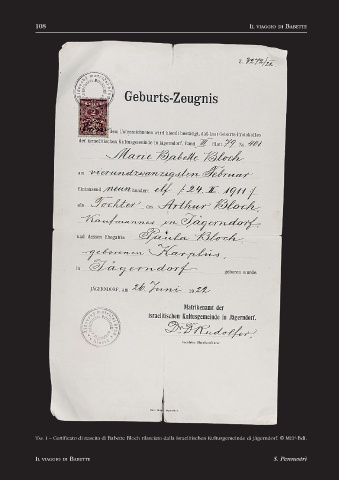 108
IL VIAGGIO DI BABETTE
Z. 8272/22
Geburts-Zeugnis
Vom Unterzeichneten wird hiemit bestätigt, daß laut Geburts-Protokolles
der israelitischen Kultusgemeinde in Jägerndorf, Band III Blatt 79 Z. 401
Marie Babette Bloch
am vierundzwanzigsten Februar
Eintausend neunhundert elf /24. II. 1911/
als Tochter des Arthur Bloch,
Kaufmannes in Jägerndorf
und dessen Ehegattin Paula Bloch
geborenen Karplus,
in Jägerndorf geboren wurde.
JÄGERNDORF, am 26. Juni 1922
Matrikenamt der
israelitischen Kultusgemeinde in Jägerndorf.
Dr. D. Rudolfer
FIG. 1 – Certificato di nascita di Babette Bloch rilasciato dalla Israelitischen Kultusgemeinde di Jägerndorf. © MEP-Bdl.
IL VIAGGIO DI BABETTE
S. Peremestri